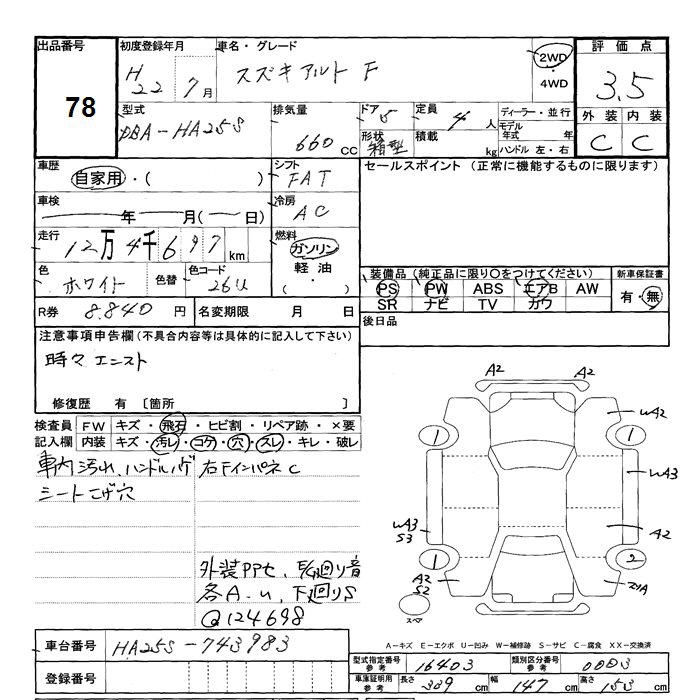 出品番号 78
初度登録年月 H22 7月
車名・グレード スズキ アルト F
2WD・4WD
評価点 3.5
外装 C 内装 C
型式 DBA-HA25S
排気量 660 cc
ドア 5
形状 箱型
定員 4 人
積載 kg
ディーラー・並行
モデル年式 年
ハンドル 左・右
車歴 自家用・( )
シフト FAT
セールスポイント (正常に機能するものに限ります)
車検 年 月( 日)
冷房 AC
走行 12万4千697 km
燃料 ガソリン 軽油 ( ・ )
色 ホワイト 色替 色コード 26U
装備品 (純正品に限り○をつけてください)
新車保証書
PS PW ABS エアB AW
有・無
SR ナビ TV カワ
R券 8.840 円
名変期限 月 日
後日品
注意事項申告欄 (不具合内容等は具体的に記入して下さい)
時々エンスト
修復歴 有 〔箇所 〕
検査員記入欄
FW キズ・飛石・ヒビ割・リペア跡・×要
内装 キズ・汚レ・コゲ・穴・スレ・キレ・破レ
車内汚れ、ハンドルハゲ 右FインパネC
シートこげ穴
外装PPセ、E/G廻り音
各A.U、下廻りS
Q124698
A2 A2
1 1 W2
WA3
WA3 S3
A2
1 2
A2 S2
スペア
A-キズ E-エクボ U-凹み W-補修跡 S-サビ C-腐食 XX-交換済
車台番号 HA25S-743983
登録番号
型式指定番号 参考 16403
類別区分番号 参考 0003
車庫証明用 参考 長さ 339 cm 幅 147 cm 高さ 153 cm